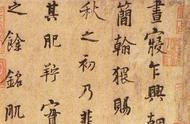 晝寢乍興
簡翰猥賜
秋之初乃韭
其肥羜實
之餘銘肌